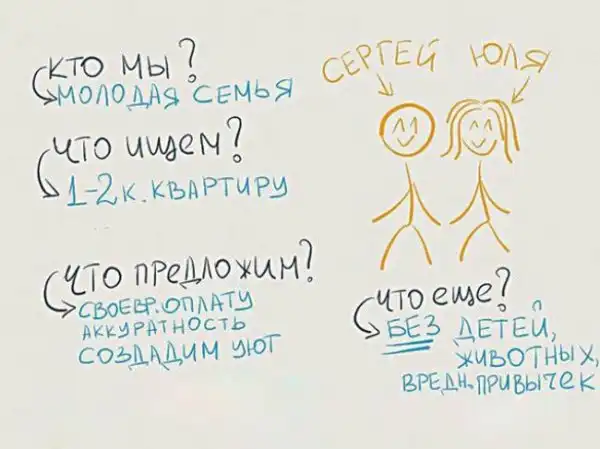 КТО МЫ?
МОЛОДАЯ СЕМЬЯ
ЧТО ИЩЕМ?
1-2 К. КВАРТИРУ
ЧТО ПРЕДЛОЖИМ?
СВОЕВР. ОПЛАТУ
АККУРАТНОСТЬ
СОЗДАДИМ УЮТ
СЕРГЕЙ ЮЛЯ
ЧТО ЕЩЕ?
БЕЗ ДЕТЕЙ,
ЖИВОТНЫХ,
ВРЕДН. ПРИВЫЧЕК